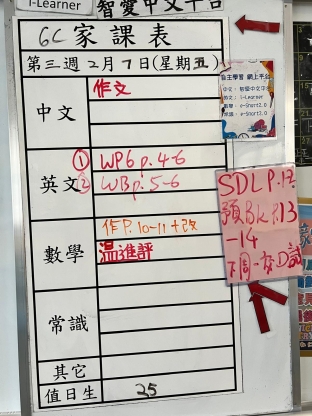 i-Learner
智愛中文平台
6C 家課表
第三週 2月7日(星期五)
中文
作文
英文
① WP6 p. 4-6
② WB p. 5-6
數學
作P. 10-11+改
溫進評
常識
其它
值日生 25
自主學習 網上平台
中文: 智愛中文平台
英文: i-Learner
數學: e-Smart2.0
常識: e-Smart2.0
SDL P.12
預BK P.13
-14
下周一交